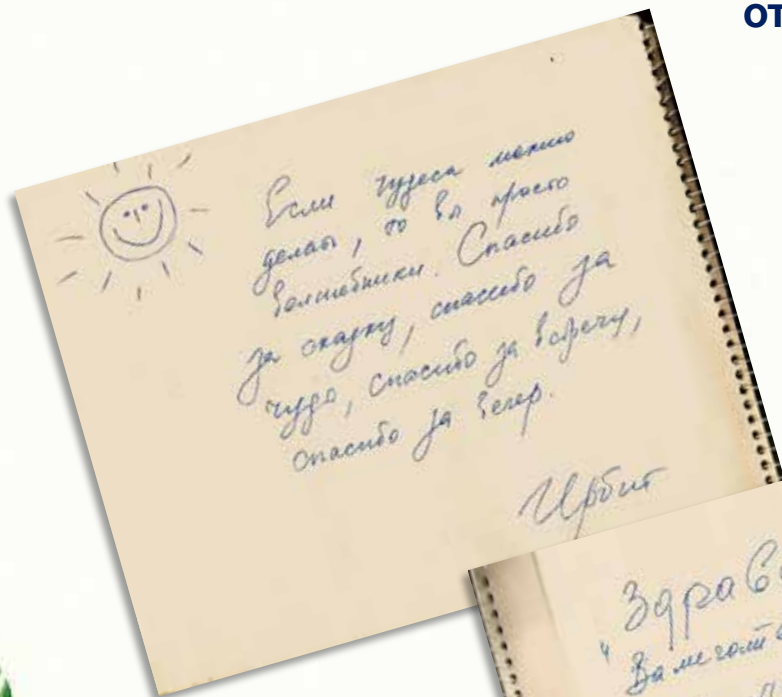 от
Если чудеса можно
делать, то вы просто
волшебники. Спасибо
за сказку, спасибо за
чудо, спасибо за встречу,
спасибо за вечер.
Ирбит
"Здрав
Замечат